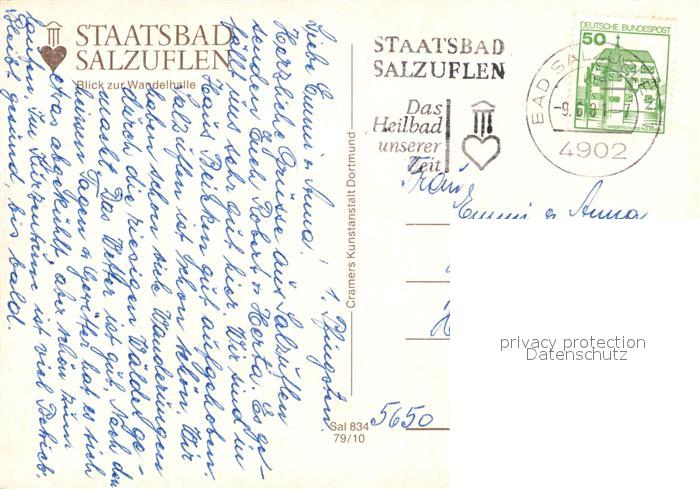 STAATSBAD
SALZUFLEN
Blick zur Wandelhalle
1. Pfingsten.
Liebe Emmi u. Anna!
Herzliche Grüße aus Salzuflen
senden Euch Robert u. Herta. Es ge-
fällt uns sehr gut hier. Wir sind in
Haus Brinken gut aufgehoben.
Salzuflen ist schon schön. Wir
haben schon viele Wanderungen
durch die riesigen Wälder ge-
macht. Das Wetter ist gut. Nach den
heißen Tagen u. Gewitter hat es sich
etwas abgekühlt aber schön zum
laufen. Im Kurzentrum ist viel Betrieb.
Bleibt gesund, bis bald.
Cramers Kunstanstalt Dortmund
Sal 834
79/10
STAATSBAD
SALZUFLEN
Das
Heilbad
unserer
Zeit
BAD SAL
-9.6.8
4902
DEUTSCHE BUNDESPOST
50
Frau
Emmi u. Anna
5650
privacy protection
Datenschutz